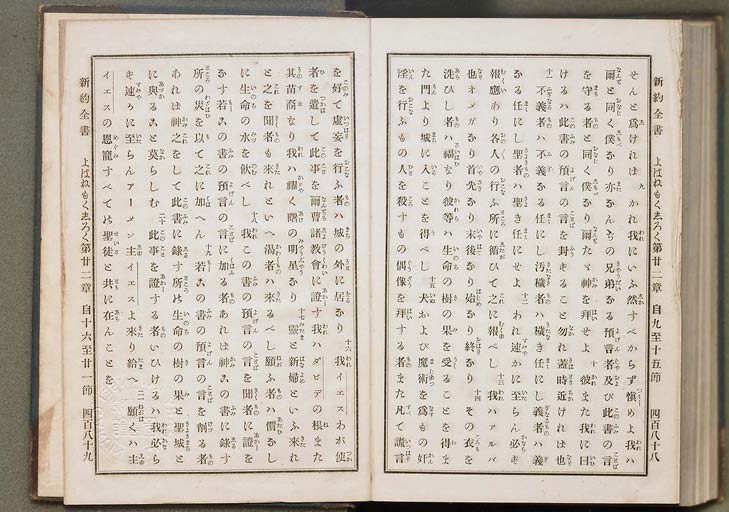 新約全書 よはねもくしろく第廿二章 自九至十五節 四百八十八
せんと爲ければ 九 かれ我にいふ然すべからず愼めよ我ハ
爾と同く僕なり亦なんぢの兄弟なる預言者及び此書の言
を守る者と同く僕なり爾たゞ神を拜せよ 十 彼また我に曰
けるハ此書の預言の言を封ずること勿れ蓋時近ければ也
十一 不義者ハ不義なる任にし汚穢者ハ穢き任にし義者ハ義
なる任にし聖者ハ聖き任にせよ 十二 われ速かに至らん必ず
報應あり各人の行ふ所に循がひて之に報べし 十三 我ハアルパ
也オメガなり首先なり末後なり始なり終なり 十四 その衣を
洗ひし者ハ福ひなり彼等ハ生命の樹の果を受ることを得ま
た門より城にいることを得べし 十五 犬および魔術を爲もの奸
淫を行ふもの人を殺すもの偶像を拜する者また凡て謊言
を好て虛妄を行ふ者ハ城の外に居なり 十六 我イエスわが使
者を遣して此事を爾曹諸敎會に證す我ハダビデの根また
其苗裔なり我ハ曜く曉の明星なり 十七 靈と新婦といふ來れ
と之を聞者も來れといへ渴者ハ來るべし願ふ者ハ價なし
に生命の水を飮べし 十八 我この書の預言の言を聞者に證を
なす若この書の預言の言に加る者あれば神この書に錄す
所の災を以て之に加へん 十九 若この書の預言の言を削る者
あれば神之をして此書に錄す所の生命の樹の果と聖城と
に與ること莫らしむ 二十 此事を證する者いひけるハ我必ら
ず速かに至らんアーメン主イエスよ來り給へ 廿一 願くハ主
イエスの恩寵すべての聖徒と共に在んことを
新約全書 よはねもくしろく第廿二章 自十六至廿一節 四百八十九